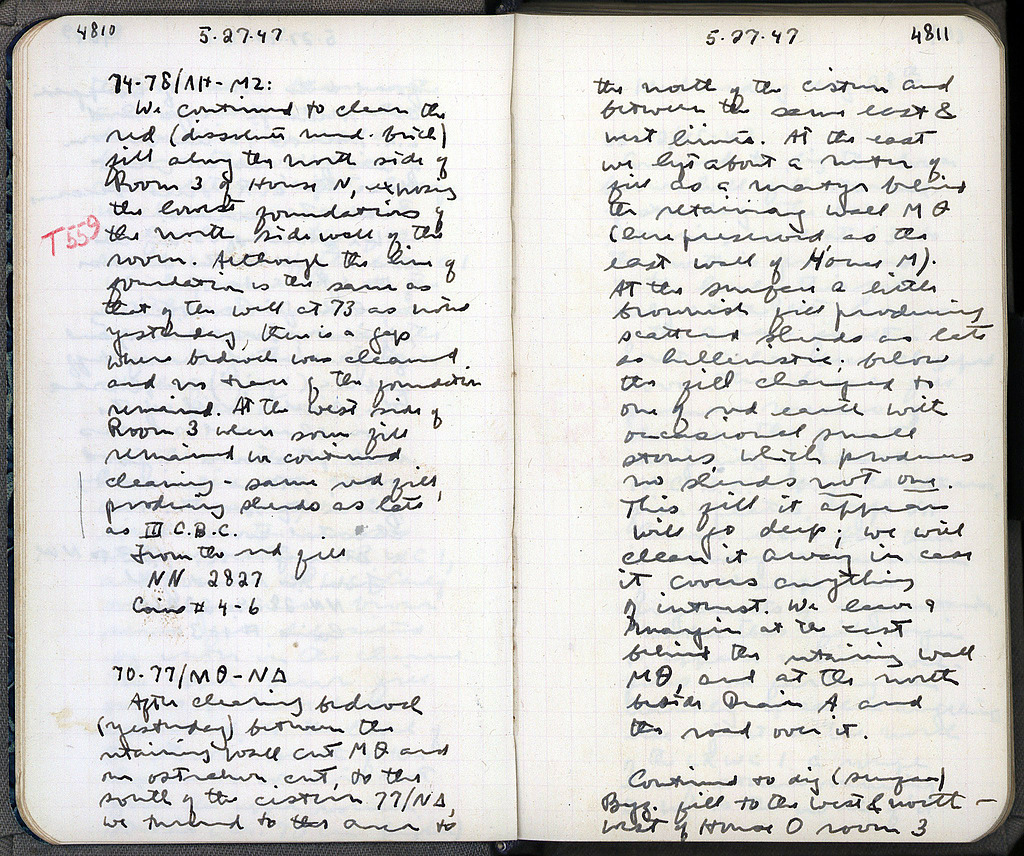 4810
5-27-47
74-78/ΛΗ-ΜΖ:
We continued to clean the
red (dissolved mud-brick)
fill along the north side of
Room 3 of House N, exposing
the lowest foundations of
T 559
the north side wall of the
room. Although the line of
foundation is the same as
that of the wall at 73 as noted
yesterday, there is a gap
where bedrock was cleaned
and no trace of the foundation
remained. At the west side of
Room 3 where some fill
remained we continued
cleaning - same red fill,
producing sherds as late
as III C.B.C.
From the red fill
NN 2827
Coins # 4-6
70-77/ΜΘ-ΝΔ
After clearing bedrock
(yesterday) between the
retaining wall cut ΜΘ and
our ostrakon cut, to the
south of the cistern 77/ΝΔ,
we turned to the area to
5-27-47
4811
the north of the cistern and
between the same east &
west limits. At the east
we left about a meter of
fill as a martyr behind
the retaining wall ΜΘ
(here preserved as the
east wall of House M).
At the surface a little
brownish fill producing
scattered sherds as late
as hellenistic; below
the fill changed to
one of red earth with
occasional small
stones which produces
no sherds not one.
This fill it appears
will go deep; we will
clean it away in case
it covers anything
of interest. We leave a
margin at the east
behind the retaining wall
ΜΘ, and at the north
beside Drain A and
the road over it.
Continued to dig (surface)
Byz. fill to the west & north-
west of House O room 3